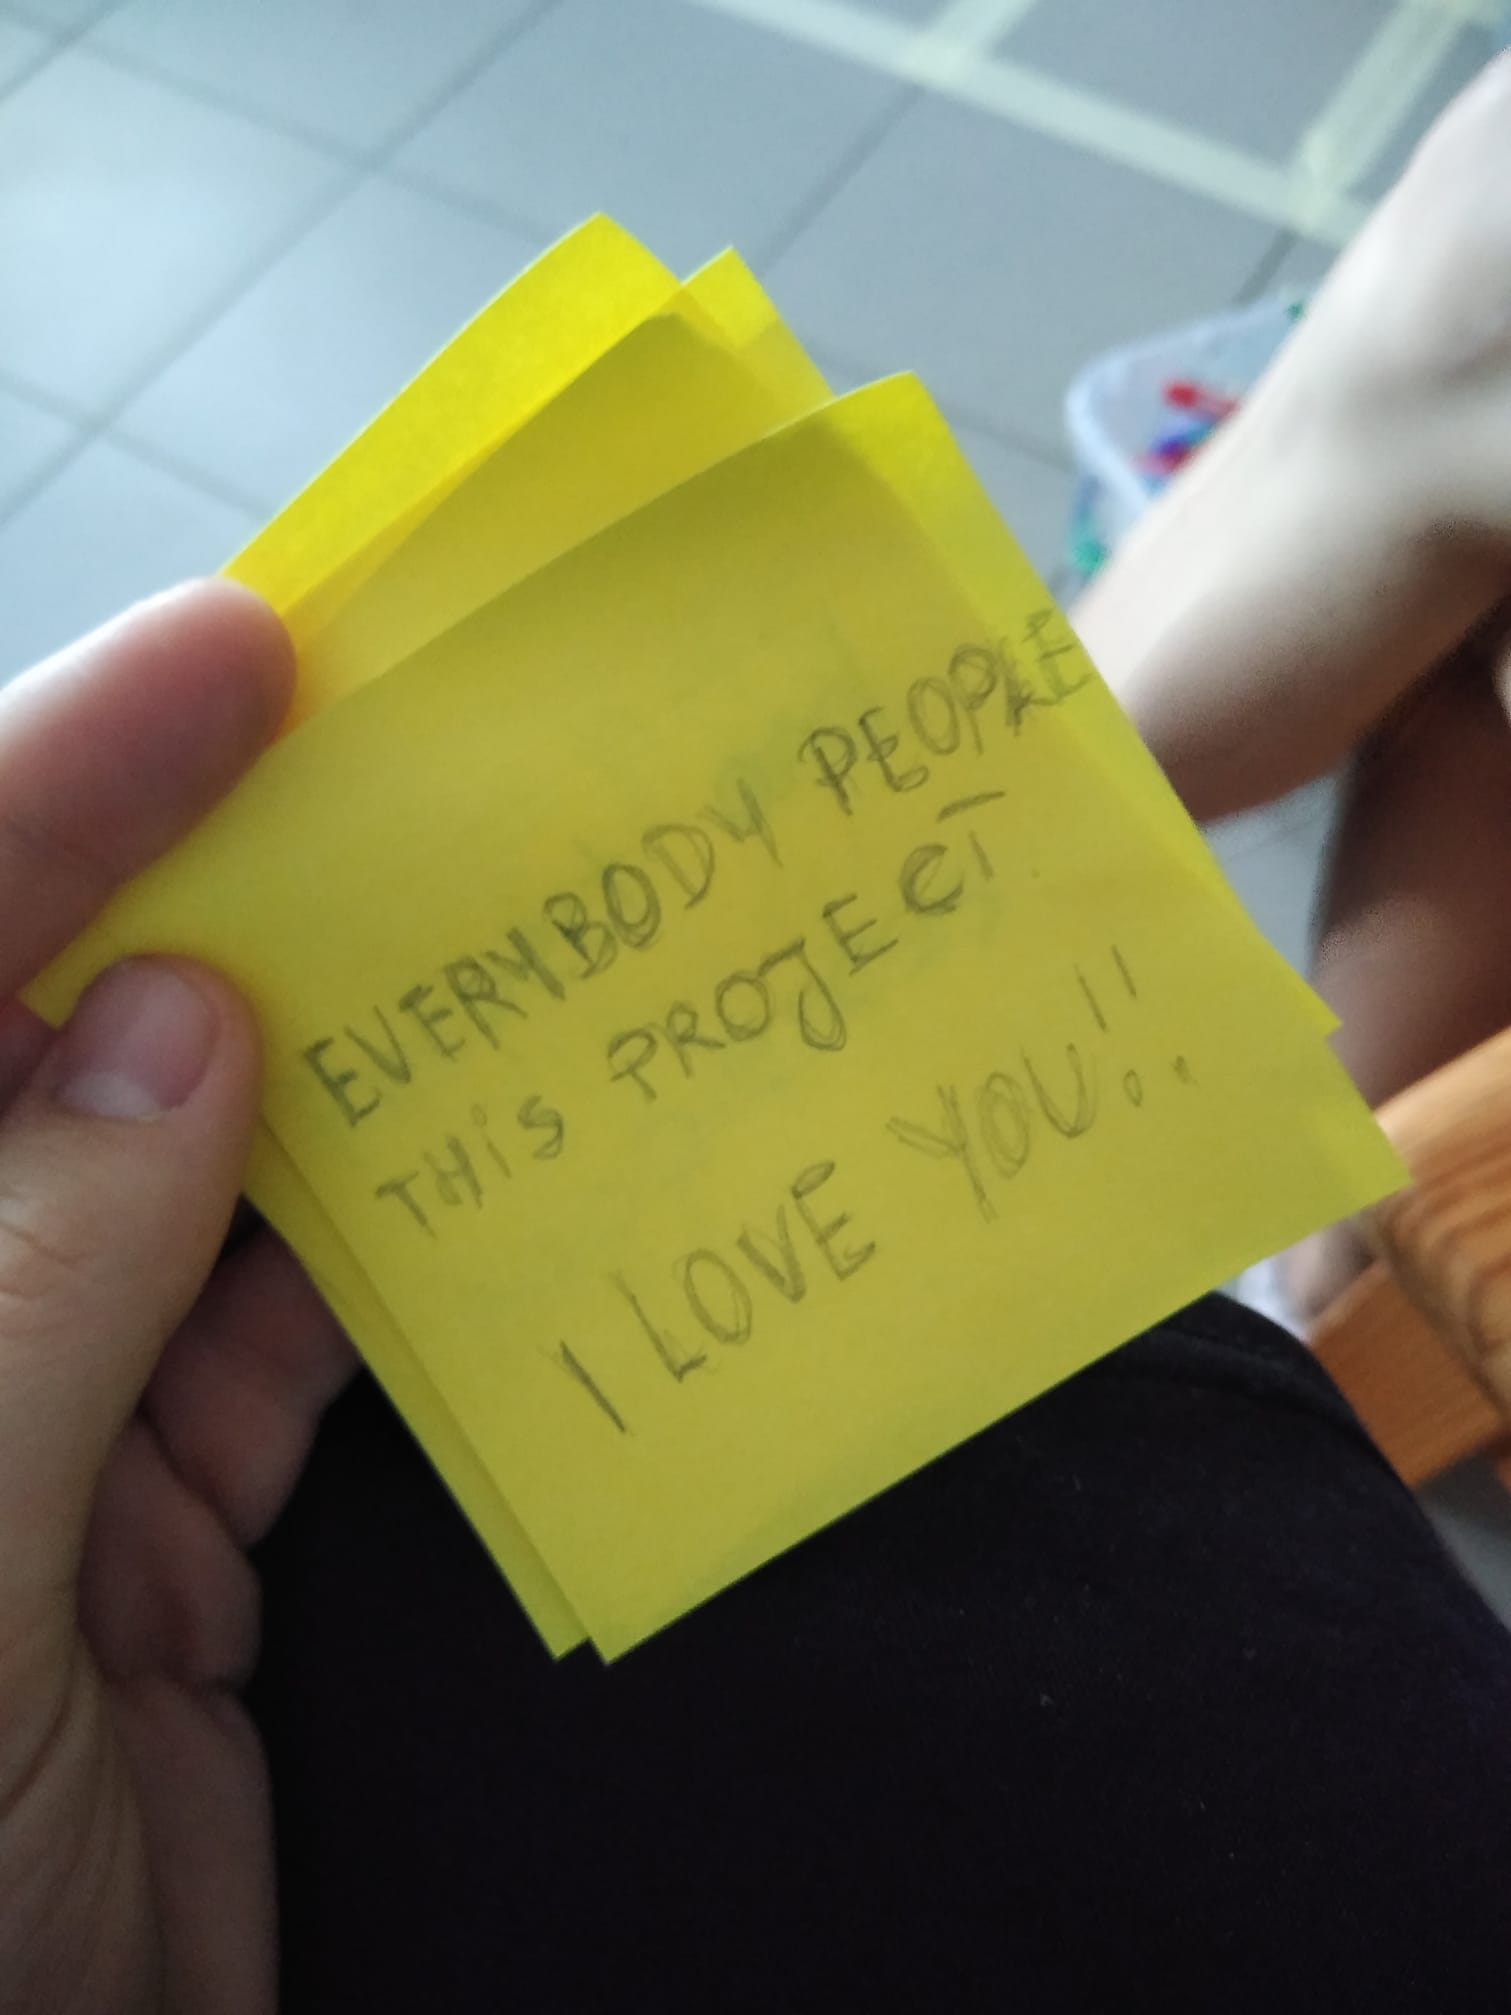 EVERYBODY PEOPLE
THiS PROJECT
I LOVE YOU!!